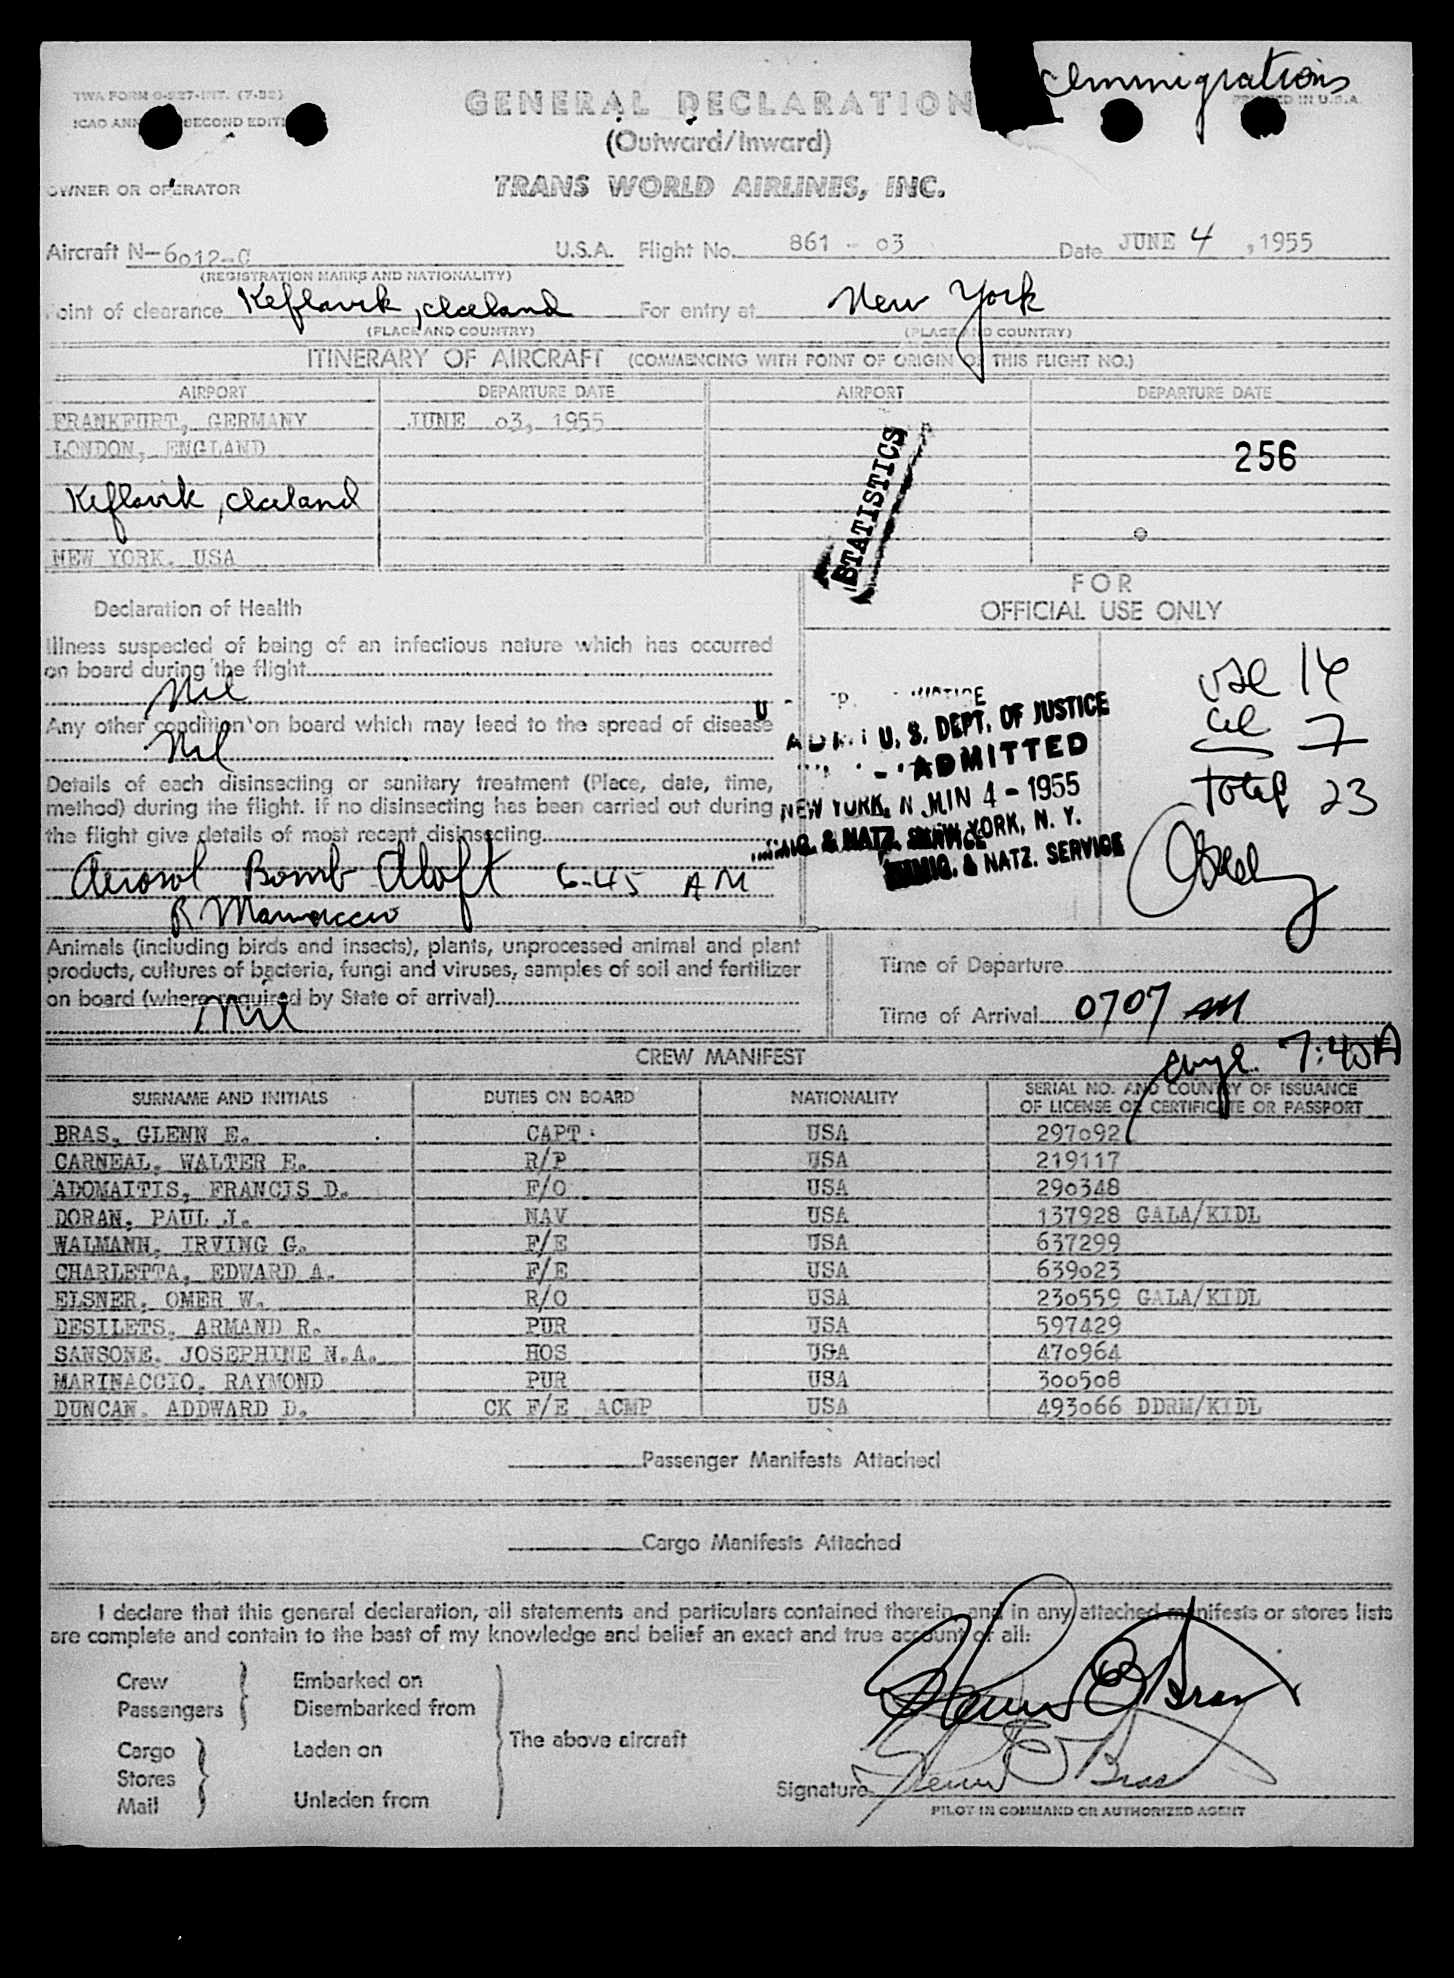 Immigration
TWA FORM O-527-INT. (7-52)
PRINTED IN U.S.A.
GENERAL DECLARATION
ICAO ANN SECOND EDIT
(Outward/Inward)
OWNER OR OPERATOR
TRANS WORLD AIRLINES, INC.
Aircraft N-6012-C U.S.A. Flight No. 861 - 03 Date JUNE 4, 1955
(REGISTRATION MARKS AND NATIONALITY)
Point of clearance Keflavik, Iceland For entry at New York
(PLACE AND COUNTRY) (PLACE AND COUNTRY)
ITINERARY OF AIRCRAFT (COMMENCING WITH POINT OF ORIGIN OF THIS FLIGHT NO.)
AIRPORT DEPARTURE DATE AIRPORT DEPARTURE DATE
FRANKFURT, GERMANY JUNE 03, 1955
LONDON, ENGLAND
256
Keflavik, Iceland
STATISTICS
NEW YORK, USA
Declaration of Health
Illness suspected of being of an infectious nature which has occurred
on board during the flight
Nil
Any other condition on board which may lead to the spread of disease
Nil
Details of each disinsecting or sanitary treatment (Place, date, time,
method) during the flight. If no disinsecting has been carried out during
the flight give details of most recent disinsecting
Aerosol Bomb Aloft 6-45 AM
R Marinaccio
FOR
OFFICIAL USE ONLY
U. S. DEPT. OF JUSTICE
ADMITTED
JUN 4 - 1955
NEW YORK, N. Y.
IMMIG. & NATZ. SERVICE
7
Total 23
Animals (including birds and insects), plants, unprocessed animal and plant
products, cultures of bacteria, fungi and viruses, samples of soil and fertilizer
on board (where required by State of arrival)
Nil
Time of Departure
Time of Arrival 0707 AM
7:40 A
CREW MANIFEST
SURNAME AND INITIALS DUTIES ON BOARD NATIONALITY SERIAL NO. AND COUNTRY OF ISSUANCE
OF LICENSE OR CERTIFICATE OR PASSPORT
BRAS, GLENN E. CAPT. USA 297092
CARNEAL, WALTER E. R/P USA 219117
ADOMAITIS, FRANCIS D. F/O USA 290348
DORAN, PAUL J. NAV USA 137928 GALA/KIDL
WALMANN, IRVING G. F/E USA 637299
CHARLETTA, EDWARD A. F/E USA 639023
ELSNER, OMER W. R/O USA 230559 GALA/KIDL
DESILETS, ARMAND R. PUR USA 597429
SANSONE, JOSEPHINE N.A. HOS USA 470964
MARINACCIO, RAYMOND PUR USA 300508
DUNCAN, ADDWARD D. CK F/E ACMP USA 493066 DDRM/KIDL
Passenger Manifests Attached
Cargo Manifests Attached
I declare that this general declaration, all statements and particulars contained therein, and in any attached manifests or stores lists
are complete and contain to the best of my knowledge and belief an exact and true account of all:
Crew Embarked on
Passengers Disembarked from
The above aircraft
Cargo Laden on
Stores
Mail Unladen from
Glenn E Bras
Signature Glenn E Bras
PILOT IN COMMAND OR AUTHORIZED AGENT